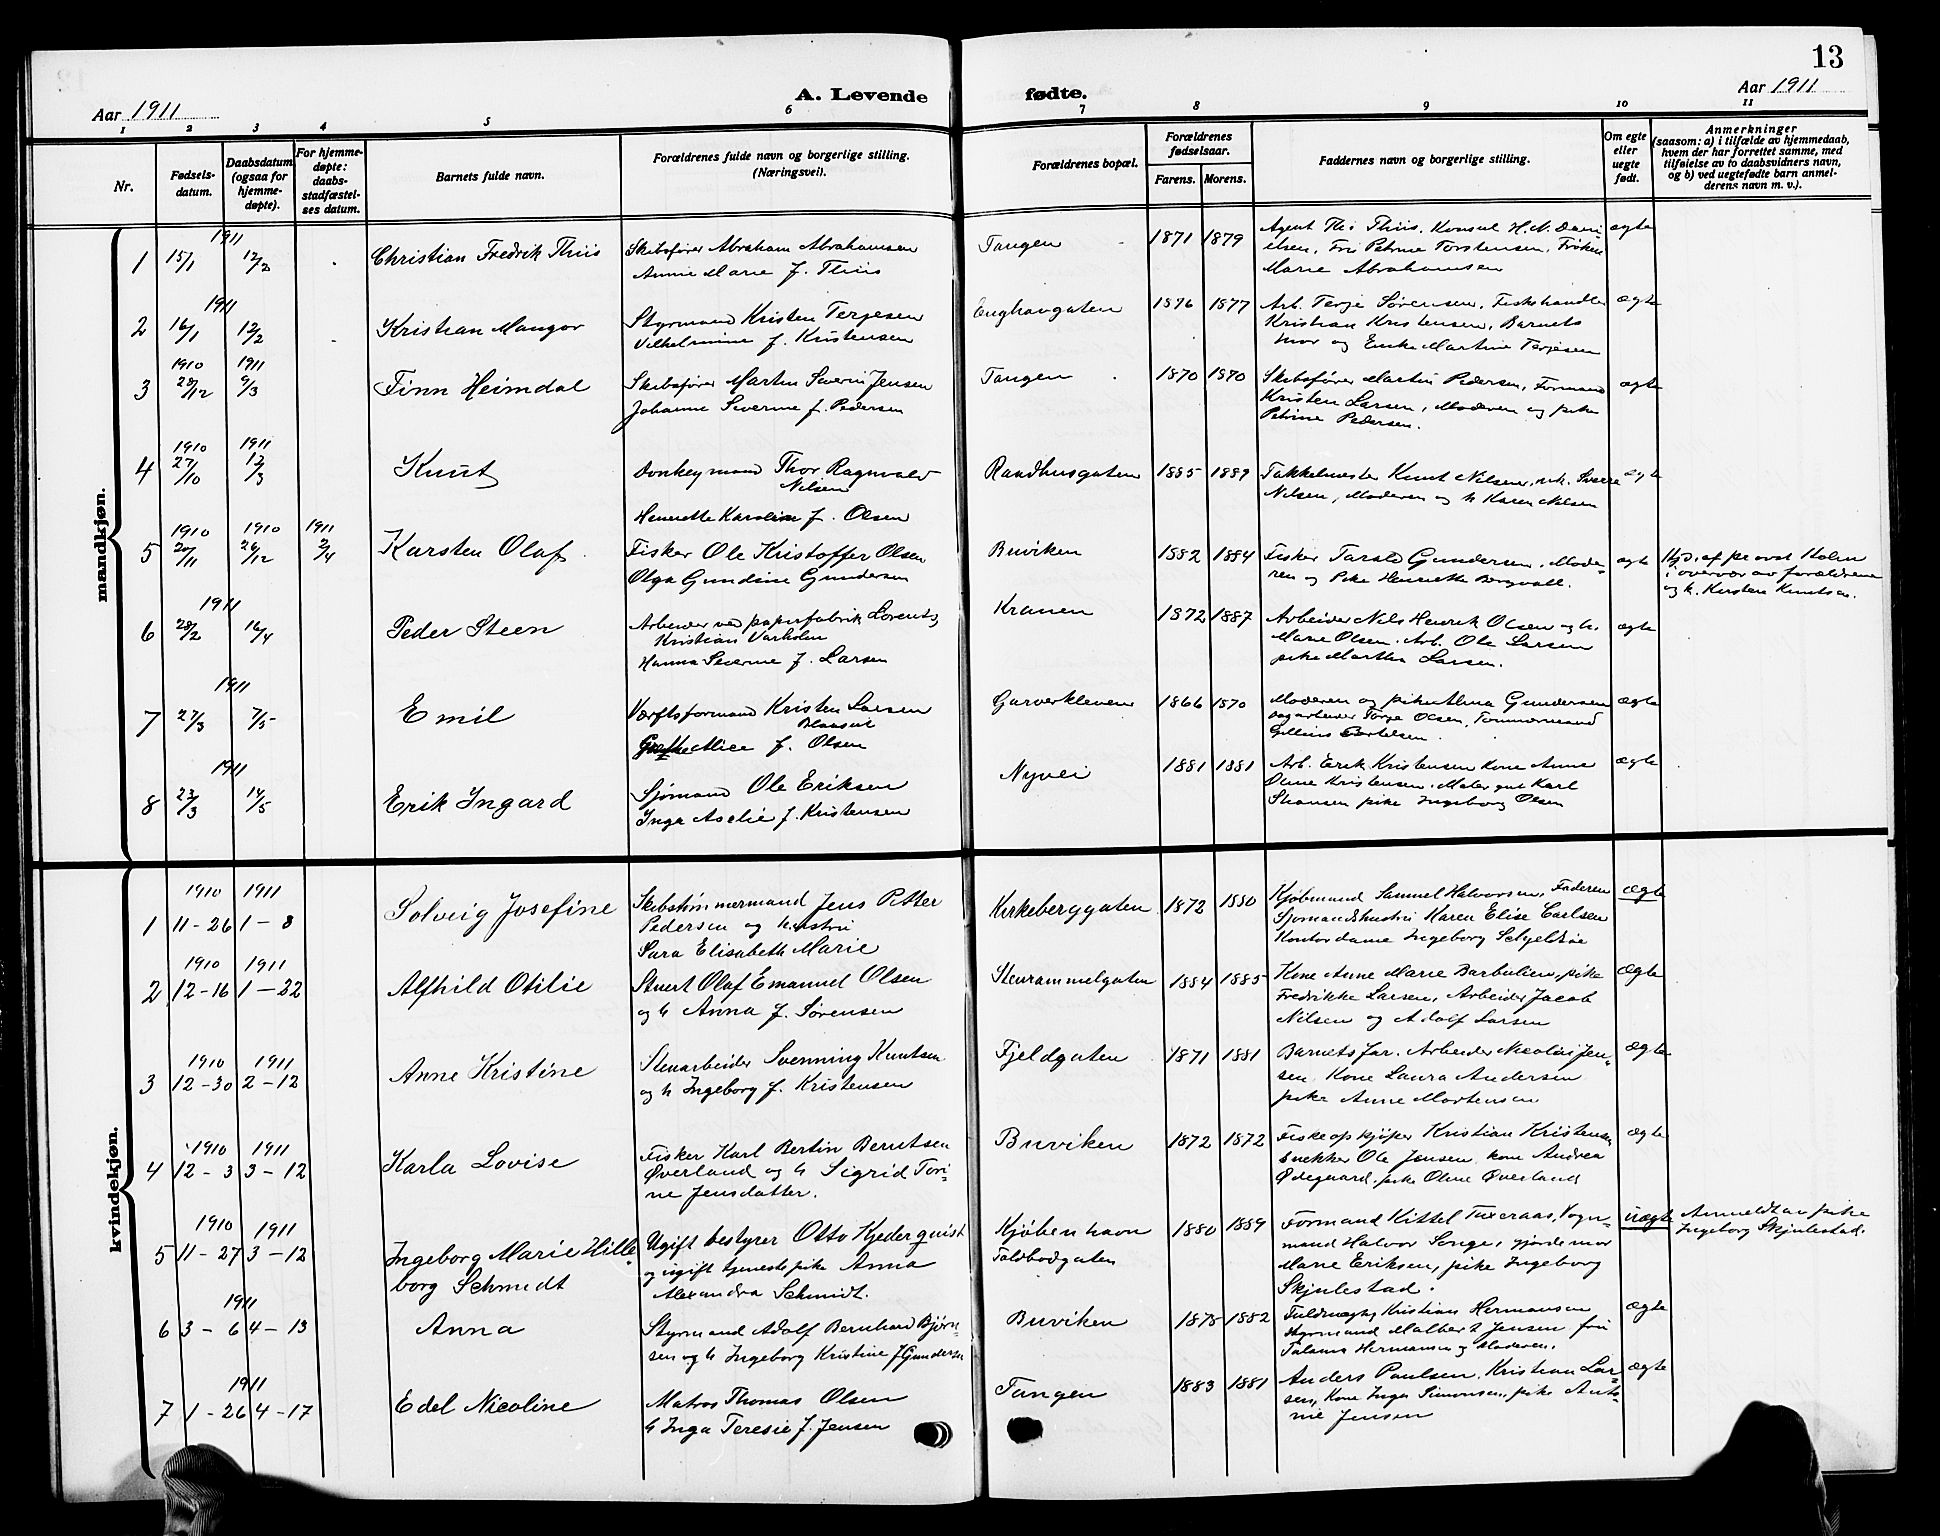 13
A. Levende fødte.
Aar 1911
Aar 1911
1 2 3 4 5 6 7 8 9 10 11
Nr.
Fødsels-
datum.
Daabsdatum
(ogsaa for
hjemme-
døpte).
For hjemme-
døpte:
daabs-
stadfæstel-
ses datum.
Barnets fulde navn.
Forældrenes fulde navn og borgerlige stilling.
(Næringsvei).
Forældrenes bopæl.
Forældrenes
fødselsaar.
Farens. Morens.
Faddernes navn og borgerlige stilling.
Om egte
eller
uegte
født.
Anmerkninger
(saasom: a) i tilfælde av hjemmedaab,
hvem der har forrettet samme, med
tilføielse av to daabsvidners navn,
og b) ved uegtefødte barn anmel-
derens navn m. v.).
mandkjøn.
1911
1 15/1 12/2 Christian Fredrik Thiis
Skibsfører Abraham Abrahamsen
Annie Marie f. Thiis
Tangen 1871 1879
Agent Ths Thiis, Konsul H. N. Dani-
elsen, Fru Petrine Torstensen, Frøken
Marie Abrahamsen
ægte
1911
2 16/1 12/2 Kristian Mangor
Styrmand Kristen Terjesen
Vilhelmine f. Kristensen
Enghavgaten 1876 1877
Arb. Terje Sørensen, Fiskehandler
Kristian Kristensen, Barnets
mor og Enke Martine Terjesen
ægte
1910 1911
3 28/12 9/3 Finn Heimdal
Skibsfører Martin Severin Jensen
Johanne Severine f. Pedersen
Tangen 1870 1870
Skibsfører Martin Pedersen, Formand
Kristen Larsen, Moderen og pike
Petrine Pedersen.
ægte
1910 1911
4 27/10 12/3 Knut
Donkeymand Thor Ragnvald
Nilsen
Henriette Karoline f. Olsen
Raadhusgaten 1885 1889
Takkelmester Knut Nilsen, Sverre
Nilsen, Moderen og h Karen Nilsen
ægte
1910 1910 1911
5 20/11 26/12 2/4 Karsten Olaf
Fisker Ole Kristoffer Olsen
Olga Gundine Gundersen
Buviken 1882 1884
Fisker Tarald Gundersen, Mode-
ren og Pike Henriette Bergvall.
ægte
Hjd. af provst Holm
i overvær av forældrene
og h. Kirsten Knutsen.
1911
6 28/2 16/4 Peder Steen
Arbeider ved papirfabrik Lorents
Kristian Varholm
Hanna Severine f. Larsen
Kranen 1872 1887
Arbeider Nils Henrik Olsen og h.
Marie Olsen. Arb. Ole Larsen
pike Marthe Larsen.
ægte
1911
7 27/3 7/5 Emil
Værftsformand Kristen Larsen
Alice f. Olsen
Garverkleven 1866 1870
Moderen og pike Alma Gundersen
Terje Olsen, Tømmermand
ægte
1911
8 23/3 14/5 Erik Ingard
Sjømand Ole Eriksen
Inga Aselie f. Kristensen
Nyvei 1881 1881
Arb. Erik Kristensen Kone Anne
Oline Kristensen. Maler Karl
pike Ingeborg Olsen
ægte
kvindekjøn.
1910 1911
1 11-26 1-8 Solveig Josefine
Skibstømmermand Jens Petter
Pedersen og hustru
Sara Elisabeth Marie
Kirkeberggaten 1872 1880
Kjøbmand Samuel Halvorsen, Faderen
Sjømandshustru Karen Elise Carlsen
Kontordame Ingeborg Schjeldsøe
ægte
1910 1911
2 12-16 1-22 Alfhild Otilie
Stuert Olaf Emanuel Olsen
og h Anna f. Sørensen
Stenrammelgaten 1884 1885
Kone Anne Marie Barbulien, pike
Fredrikke Larsen, Arbeider Jacob
Nilsen og Adolf Larsen
ægte
1910 1911
3 12-30 2-12 Anne Kristine
Stenarbeider Svenning Knutsen
og h Ingeborg f. Kristensen
Fjeldgaten 1871 1881
Barnets far. Arbeider Nicolai Jen-
sen. Kone Laura Andersen
pike Anne Mortensen
ægte
1910 1911
4 12-3 3-12 Karla Lovise
Fisker Karl Bertin Berntsen
Øverland og h Sigrid Tori-
ne Jensdatter.
Buviken 1872 1872
Fiskeopkjøper Kristian Kristensen
snekker Ole Jensen, kone Andrea
Ødegaard, pike Oline Øverland
ægte
1910 1911
5 11-27 3-12 Ingeborg Marie Hille-
borg Schmidt
Ugift bestyrer Otto Kjederquist
og ugift tjenestepike Anna
Alexandra Schmidt.
Kjøbenhavn
Toldbodgaten
1880 1889
Formand Kittel Tuxeraas, Vogn-
mand Halvor Songe, gjordemor
Marie Eriksen, pike Ingeborg
Skjulestad.
uægte
Anmeldt av pike
Ingeborg Skjulestad.
1911
6 3-6 4-13 Anna
Styrmand Adolf Bernhard Bjørn-
sen og h Ingeborg Kristine f Gundersen
Buviken 1878 1882
Fuldmægtig Kristian Hermansen
styrmand Malbert Jensen fru
Hermansen og Moderen.
ægte
1911
7 1-26 4-17 Edel Nicoline
Matros Thomas Olsen
h Inga Teresie f. Jensen
Tangen 1883 1881
Anders Paulsen, Kristian Lar-
sen, Kone Inga Simonsen, pike Anto-
nie Jensen
ægte